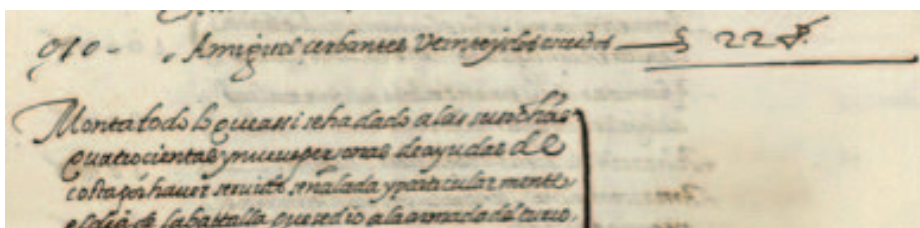 910 - Amiguel cerbantes Veinte y dos escudos — S 22 V.
Monta todo lo que assi se ha dado a las suso dhas
quatrocientas y nueve personas de ayudas de
costa por haver servido señalada y particular mente
el dia de la battalla que se dio a la armada del turco